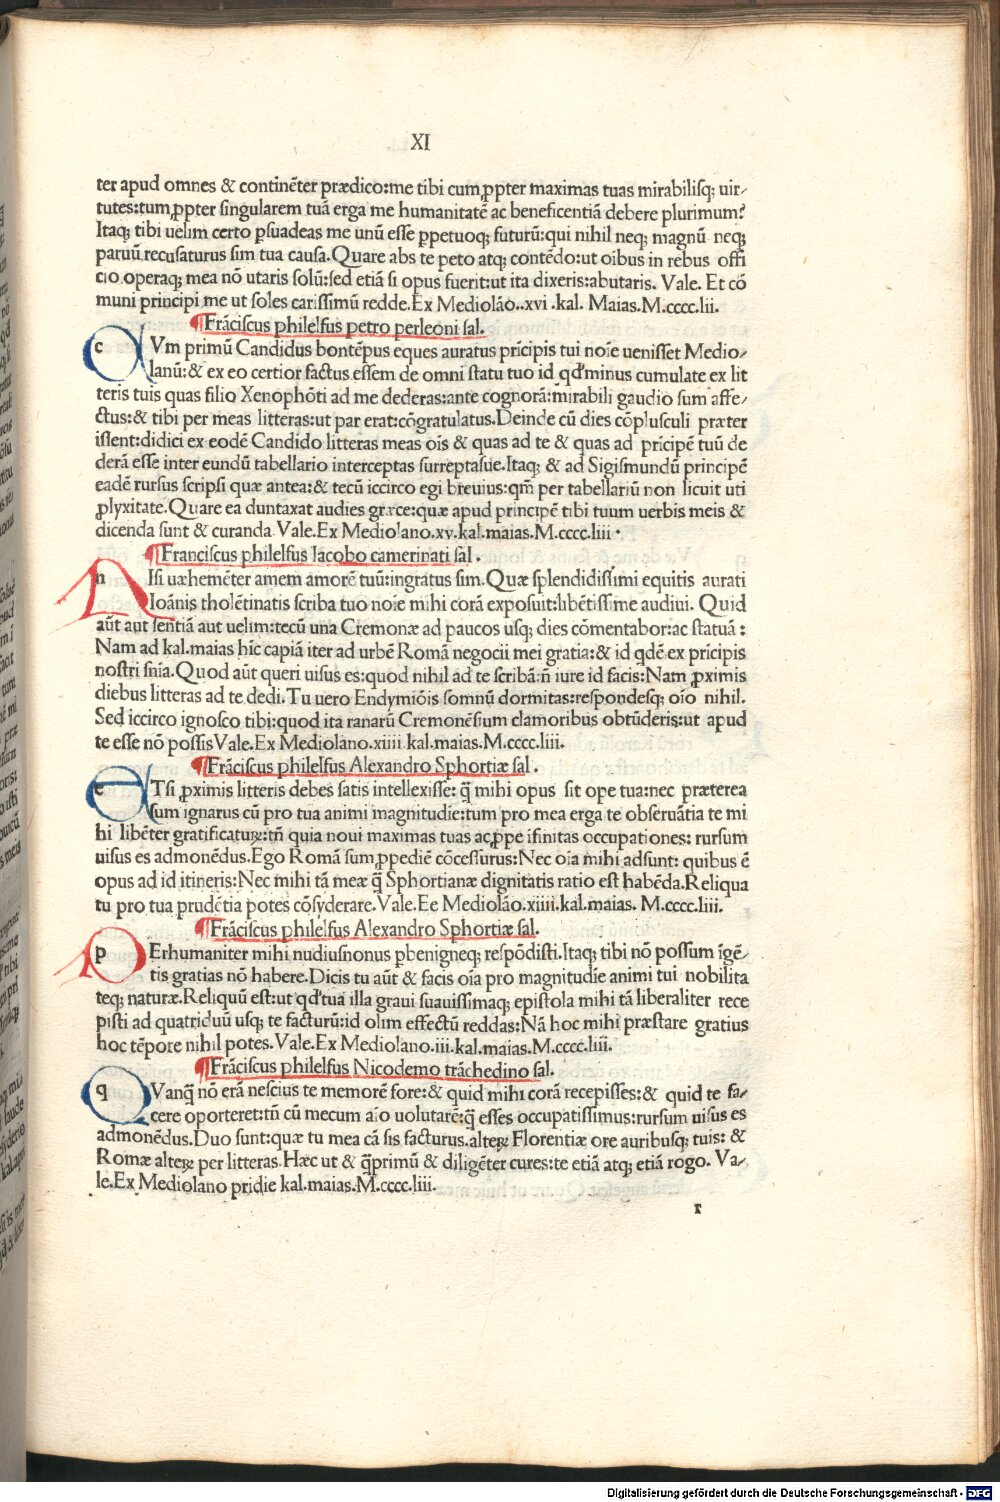 XI
ter apud omnes & continēter prædico:me tibi cum ꝓpter maximas tuas mirabilisq; uir-
tutes:tum ꝓpter singularem tuā erga me humanitatē ac beneficentiā debere plurimum?
Itaq; tibi uelim certo ꝑsuadeas me unū esse ꝑpetuoq; futurū:qui nihil neq; magnū neq;
paruū recusaturus sim tua causa.Quare abs te peto atq; contēdo:ut oībus in rebus offi
cio operaq; mea nō utaris solū:sed etiā si opus fuerit:ut ita dixeris:abutaris. Vale. Et cō
muni principi me ut soles carissimū redde.Ex Mediolāo..xvi .kal. Maias.M.cccc.lii.
Frāciscus philelfus petro perleoni sal.
c Vm primū Candidus bontēpus eques auratus prīcipis tui noīe uenisset Medio-
lanū:& ex eo certior factus essem de omni statu tuo id qd' minus cumulate ex lit
teris tuis quas filio Xenophōti ad me dederas:ante cognorā:mirabili gaudio sum affe-
ctus:& tibi per meas litteras:ut par erat:cōgratulatus.Deinde cū dies cōplusculi præter
issent:didici ex eodē Candido litteras meas oīs & quas ad te & quas ad prīcipē tuū de
derā esse inter eundū tabellario interceptas surreptasue.Itaq; & ad Sigismundū principē
eadē rursus scripsi quæ antea:& tecū iccirco egi breuius:qm̄ per tabellariū non licuit uti
ꝓlyxitate.Quare ea duntaxat audies græce:quæ apud principē tibi tuum uerbis meis &
dicenda sunt & curanda.Vale.Ex Mediolano.xv.kal.maias.M.cccc.liii.
Franciscus philelfus Iacobo camerinati sal.
n Isi uæhemēter amem amorē tuū:ingratus sim.Quæ splendidissimi equitis aurati
Ioānis tholētinatis scriba tuo noīe mihi corā exposuit:libētissime audiui. Quid
aūt aut sentiā aut uelim:tecū una Cremonæ ad paucos usq; dies cōmentabor:ac statuā:
Nam ad kal.maias hic capiā iter ad urbē Romā negocii mei gratia:& id qdē ex pricipis
nostri snīa.Quod aūt queri uisus es:quod nihil ad te scribā:ñ iure id facis:Nam ꝓximis
diebus litteras ad te dedi.Tu uero Endymiōis somnū dormitas:respondesq; oīo nihil.
Sed iccirco ignosco tibi:quod ita ranarū Cremonēsium clamoribus obtūderis:ut apud
te esse nō possis Vale.Ex Mediolano.xiiii.kal.maias.M.cccc.liii.
Frāciscus philelfus Alexandro Sphortiæ sal.
e Tsi ꝓximis litteris debes satis intellexisse: q̄ mihi opus sit ope tua:nec præterea
sum ignarus cū pro tua animi magnitudīe:tum pro mea erga te obseruātia te mi
hi libēter gratificaturꝝ:tñ quia noui maximas tuas ac ꝓpe īfinitas occupationes: rursum
uisus es admonēdus.Ego Romā sum ꝓpediē cōcessurus:Nec oīa mihi adsunt: quibus ē
opus ad id itineris:Nec mihi tā meæ q̄ Sphortianæ dignitatis ratio est habēda.Reliqua
tu pro tua prudētia potes cōsyderare.Vale.Ee Mediolāo.xiiii.kal.maias. M.cccc.liii.
Frāciscus philelfus Alexandro Sphortiæ sal.
p Erhumaniter mihi nudiusnonus ꝑbenigneq; respōdisti.Itaq; tibi nō possum īgē-
tis gratias nō habere.Dicis tu aūt & facis oīa pro magnitudīe animi tui nobilita
teq; naturæ.Reliquū est:ut qd' tua illa graui suauissimaq; epistola mihi tā liberaliter rece
pisti ad quatriduū usq; te facturū:id olim effectū reddas:Nā hoc mihi præstare gratius
hoc tēpore nihil potes.Vale.Ex Mediolano.iii.kal.maias.M.cccc.liii.
Frāciscus philelfus Nicodemo trāchedino sal.
q Vanq̄ nō erā nescius te memorē fore:& quid mihi corā recepisses:& quid te fa-
cere oporteret:tñ cū mecum aīo uolutarē:q̄ esses occupatissimus:rursum uisus es
admonēdus.Duo sunt:quæ tu mea cā sis facturus.alterꝝ Florentiæ ore auribusq; tuis: &
Romæ alterꝝ per litteras.Hæc ut & q̄primū & diligēter cures:te etiā atq; etiā rogo. Va-
le.Ex Mediolano pridie kal.maias.M.cccc.liii.
r
Digitalisierung gefördert durch die Deutsche Forschungsgemeinschaft - DFG